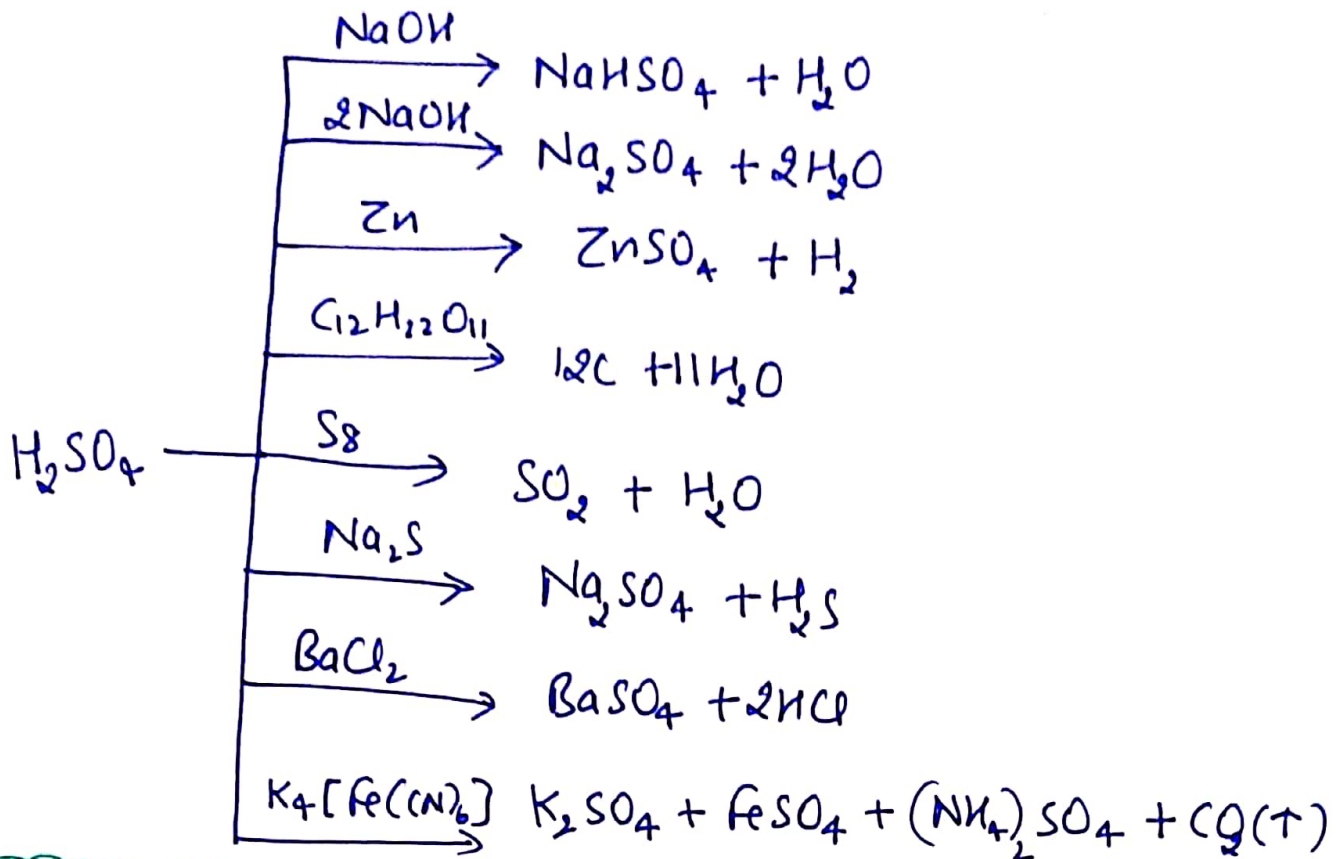 NaOH
NaHSO₄ + H₂O
2NaOH
Na₂SO₄ + 2H₂O
Zn
ZnSO₄ + H₂
C₁₂H₂₂O₁₁
12C + 11H₂O
H₂SO₄
S₈
SO₂ + H₂O
Na₂S
Na₂SO₄ + H₂S
BaCl₂
BaSO₄ + 2HCl
K₄[Fe(CN)₆] K₂SO₄ + FeSO₄ + (NH₄)₂SO₄ + CO₂(↑)